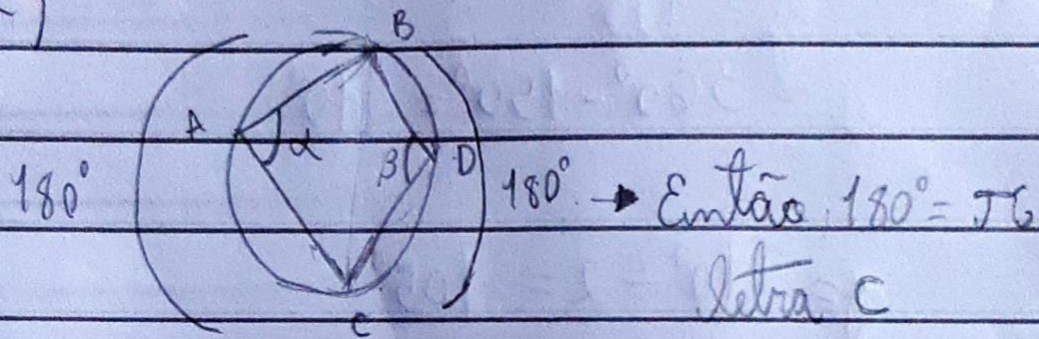 B
A
α
β
D
180°
180° → Então 180° = π
letra C
C